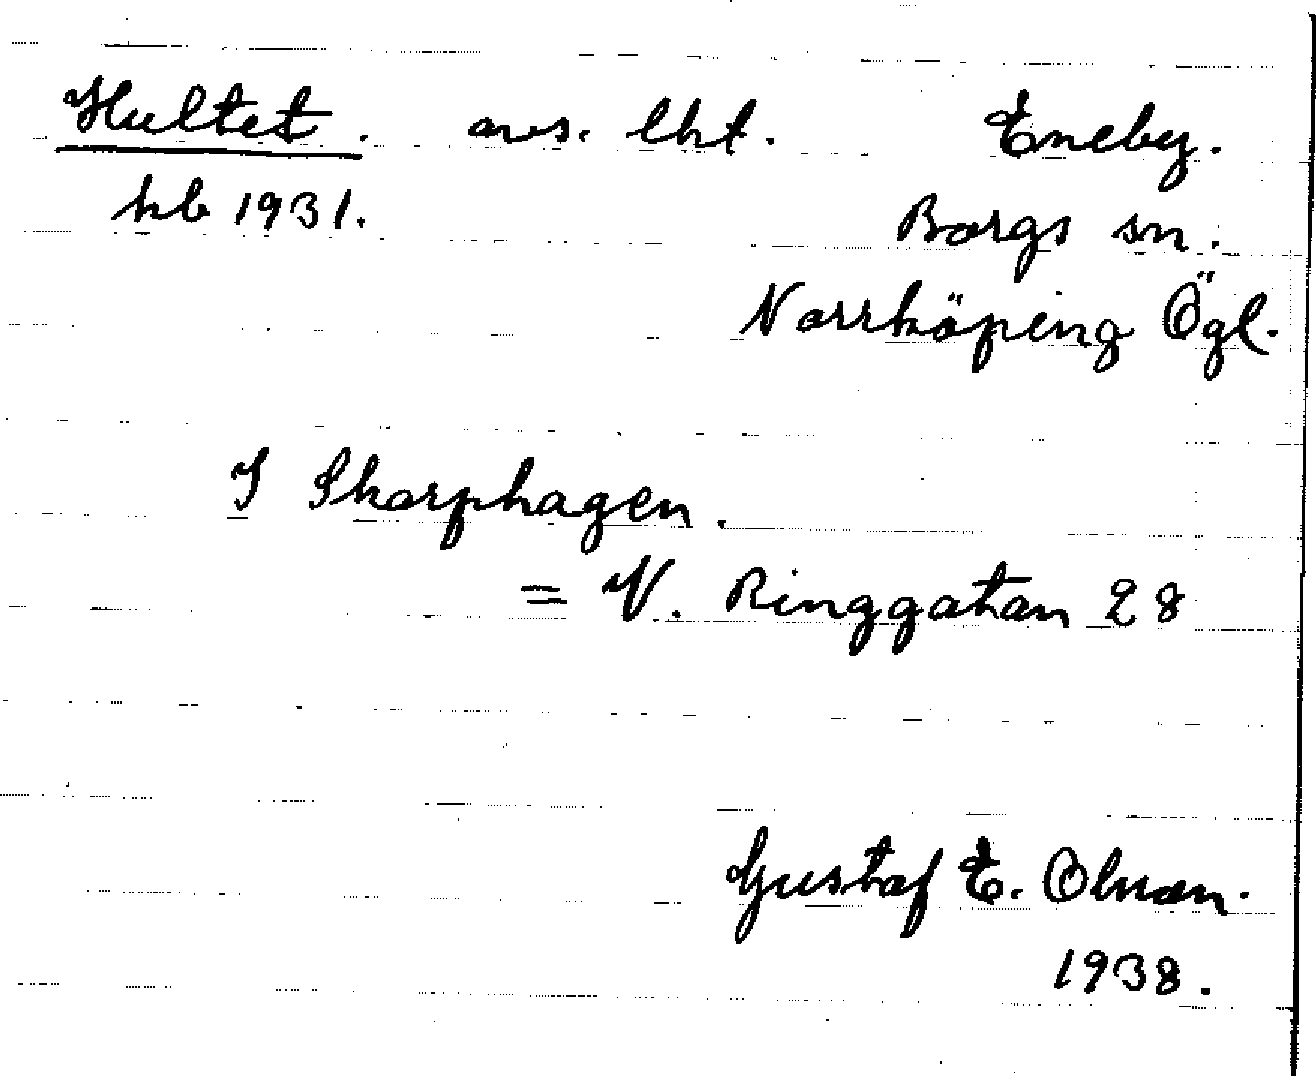 Hultet. avs. lht. Eneby.
kb 1931. Borgs sn.
Norrköping Ögl.
I Skarphagen.
= V. Ringgatan 28
Gustaf E. Olman.
1938.